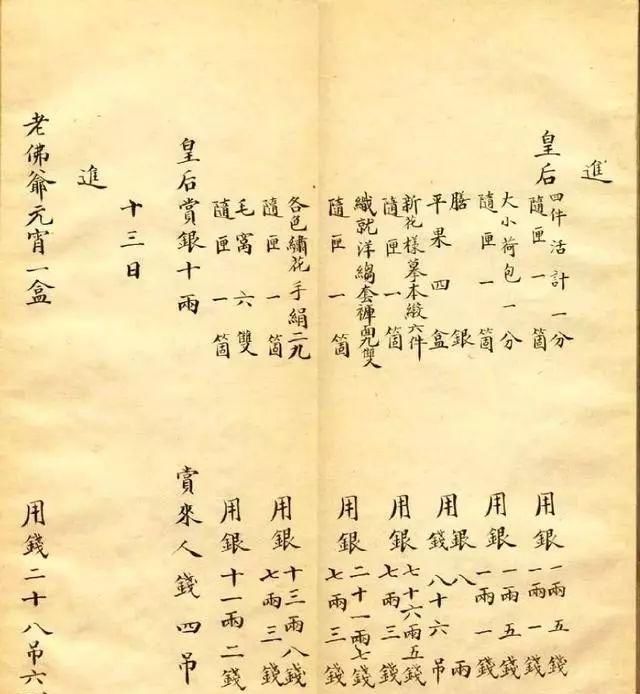 進
皇后
四件活計一分
隨匣一箇
用銀
一兩五錢
一兩一錢
大小荷包一分
隨匣一箇
用銀
一兩五錢
一兩一錢
膳銀
平果四盒
用
銀八兩
錢八十六吊
新花樣摹本緞六件
隨匣一箇
用銀
七十六兩五錢
七兩三錢
織就洋縐套褲四九雙
隨匣一箇
用銀
二十一兩七錢
七兩三錢
各色繡花手絹二九
隨匣一箇
用銀
十三兩八錢
七兩三錢
毛窩六雙
隨匣一箇
用銀十一兩二錢
皇后賞銀十兩
賞來人錢四吊
十三日
進
老佛爺元宵一盒
用錢二十八吊六